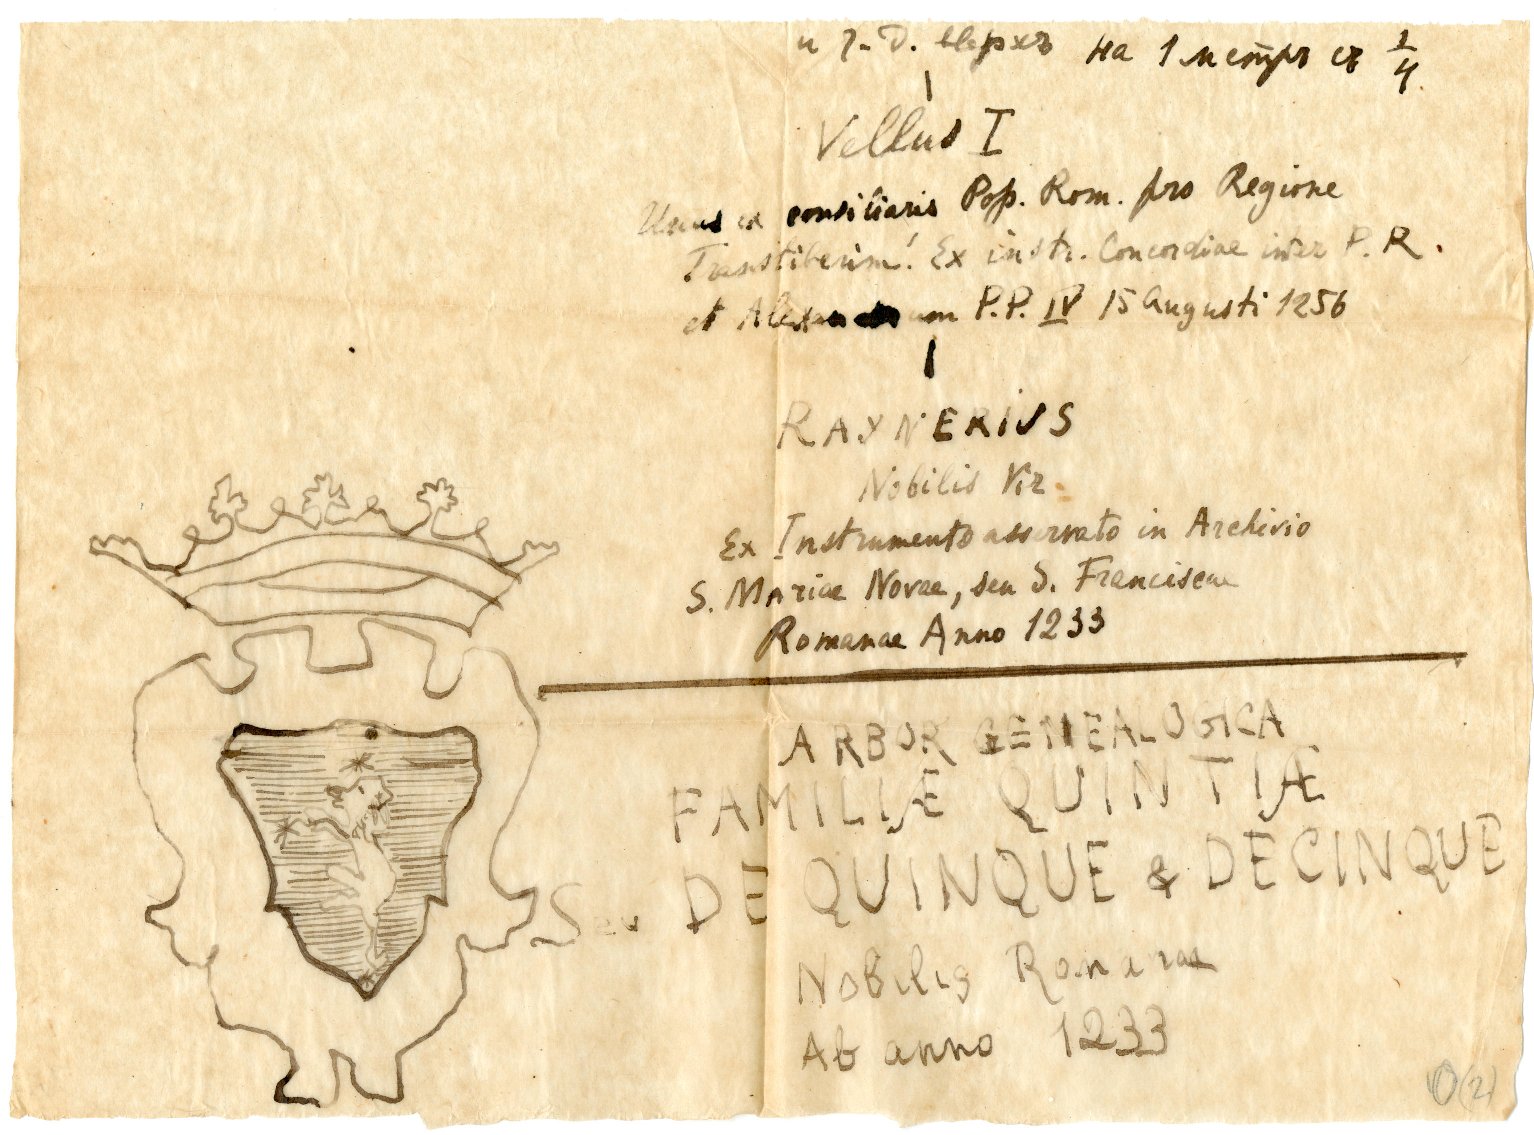 и т. д. вверхъ на 1 метръ съ 1/4
Vellus I
Unus ex consiliaris Pop. Rom. pro Regione
Transtiberim! Ex instr. Concordiae inter P. R.
et Alexandrum P.P. IV 15 Augusti 1256
RAYNERIUS
Nobilis Vir
Ex Instrumento asservato in Archivio
S. Mariae Novae, seu S. Franciscae
Romanae Anno 1233
ARBOR GENEALOGICA
FAMILIÆ QUINTIÆ
Seu DE QUINQUE & DECINQUE
Nobilis Romanae
Ab anno 1233
(2)